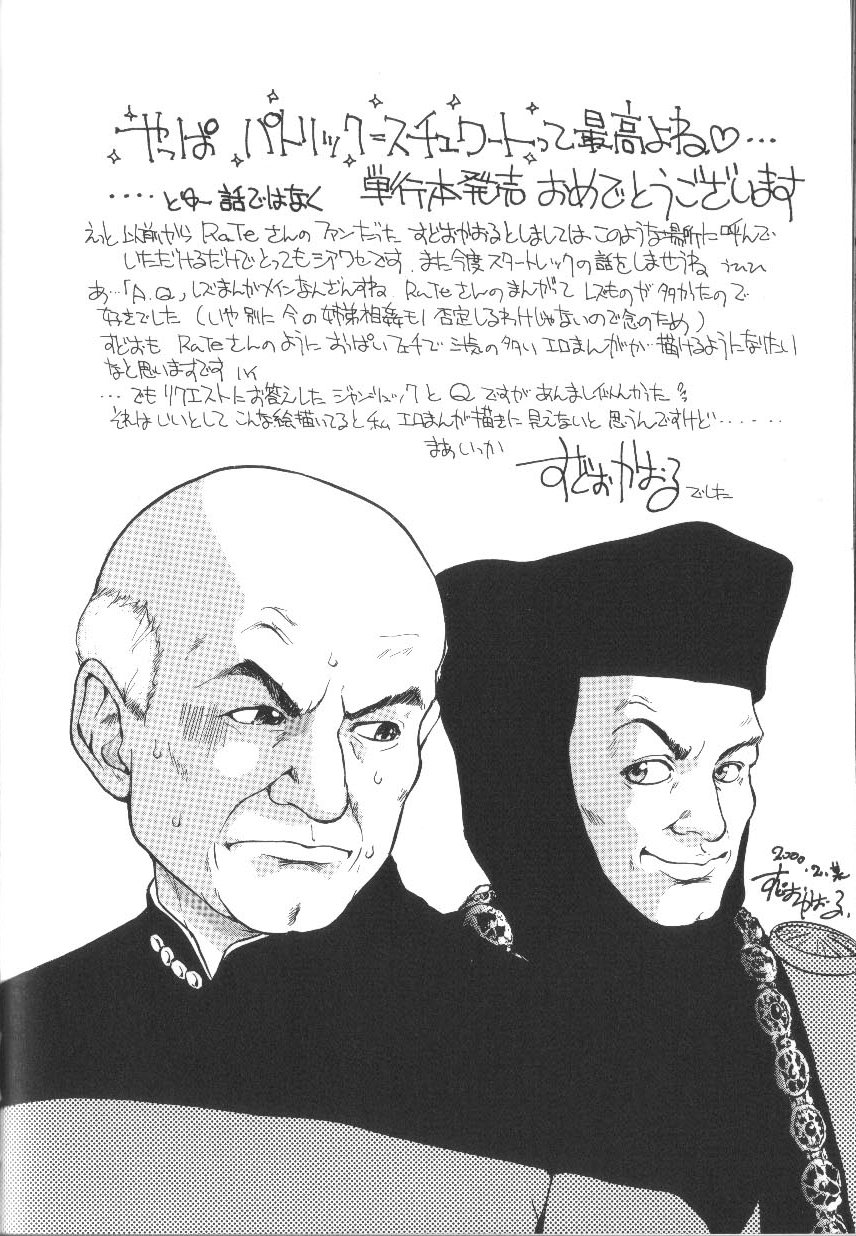 やっぱ パトリック=スチュワートって最高よね♡…
‥‥とゆー話ではなく 単行本発売 おめでとうございます
えっと以前から RaTe さんのファンだった すどおかおるとしましては、このような場所に呼んで
いただけるだけでとってもシアワセです。また今度スタートレックの話をしませうね
あ…「A.Q」レズまんがメインなんざんすね RaTeさんのまんがって レズものが多かったので
好きでした(いや別に今の姉弟相姦も否定しるわけじゃないので念のため)
すどおも RaTeさんのように おっぱいフェチで 汁気の多い エロまんがが 描けるようになりたい
なと思いますです ハイ
…でもリクエストにお答えした ジャン=リュックと Q ですがあんまし似んかった
それはいいとして こんな絵描いてると私 エロまんが描きに見えないと思うんですけど‥‥‥
まあいっか
すどおかおる でした
2000.2.
すどおかおる.